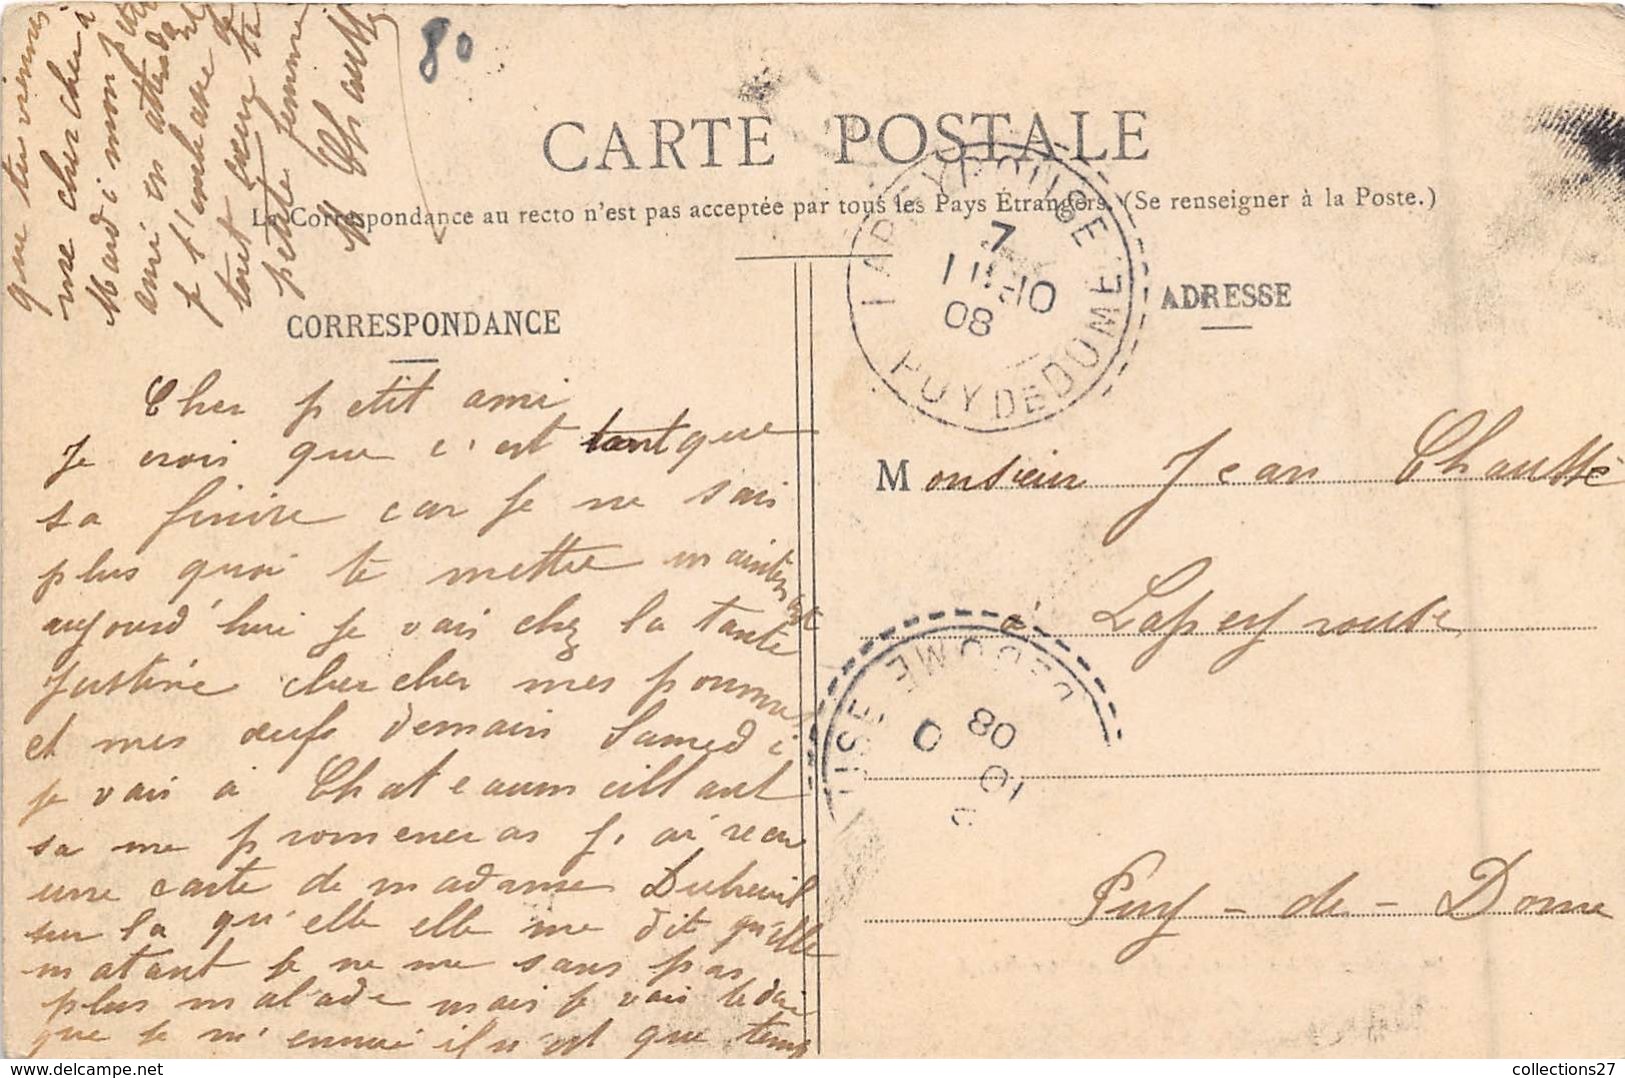 80
CARTE POSTALE
La Correspondance au recto n'est pas acceptée par tous les Pays Étrangers. (Se renseigner à la Poste.)
CORRESPONDANCE
ADRESSE
Cher petit ami
Je crois que c'est tant que
sa finire car je ne sais
plus quoi te mettre maintenant
aujourd'hui je vais chez la tante
Justine chercher mes pommes
et mes œufs demain Samedi
je vais à Chateaumeillant
sa me promeneras j, ai recu
une carte de madame Dubreuil
sur la qu'elle elle me dit qu'elle
m'atant je ne me sans pas
plus malade mais je vais te dir
que je m'ennui il n est que temps
que tu viennes
me chercher à
Mardi mon petit
ami en attendant
je t'embrasse de
tout coeur ta
petite femme
M Chaussé
Monsieur Jean Chaussé
à Lapeyrouse
Puy - de - Dome
LAPEYROUSE
7
11 - 10
08
PUY DE DOME
USE
DE DOME
10
08
collections27